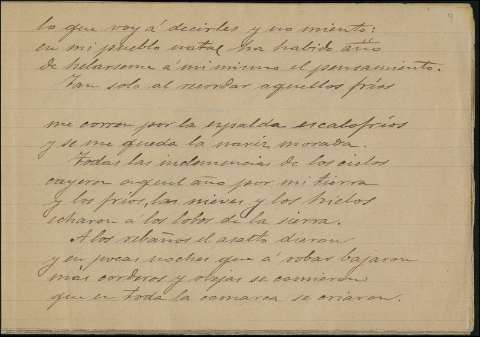 lo que voy á decirles y no miento:
en mi pueblo natal ha habido año
de helarseme á mi mismo el pensamiento.
Tan solo al recordar aquellos frios
me corren por la espalda escalofrios
y se me queda la nariz morada.
Todas las inclemencias de los cielos
cayeron aquel año por mi tierra
y los frios, las nieves y los hielos
echaron á los lobos de la sierra.
A los rebaños el asalto dieron
y en pocas noches que á robar bajaron
más corderos y ovejas se comieron
que en toda la comarca se criaron.